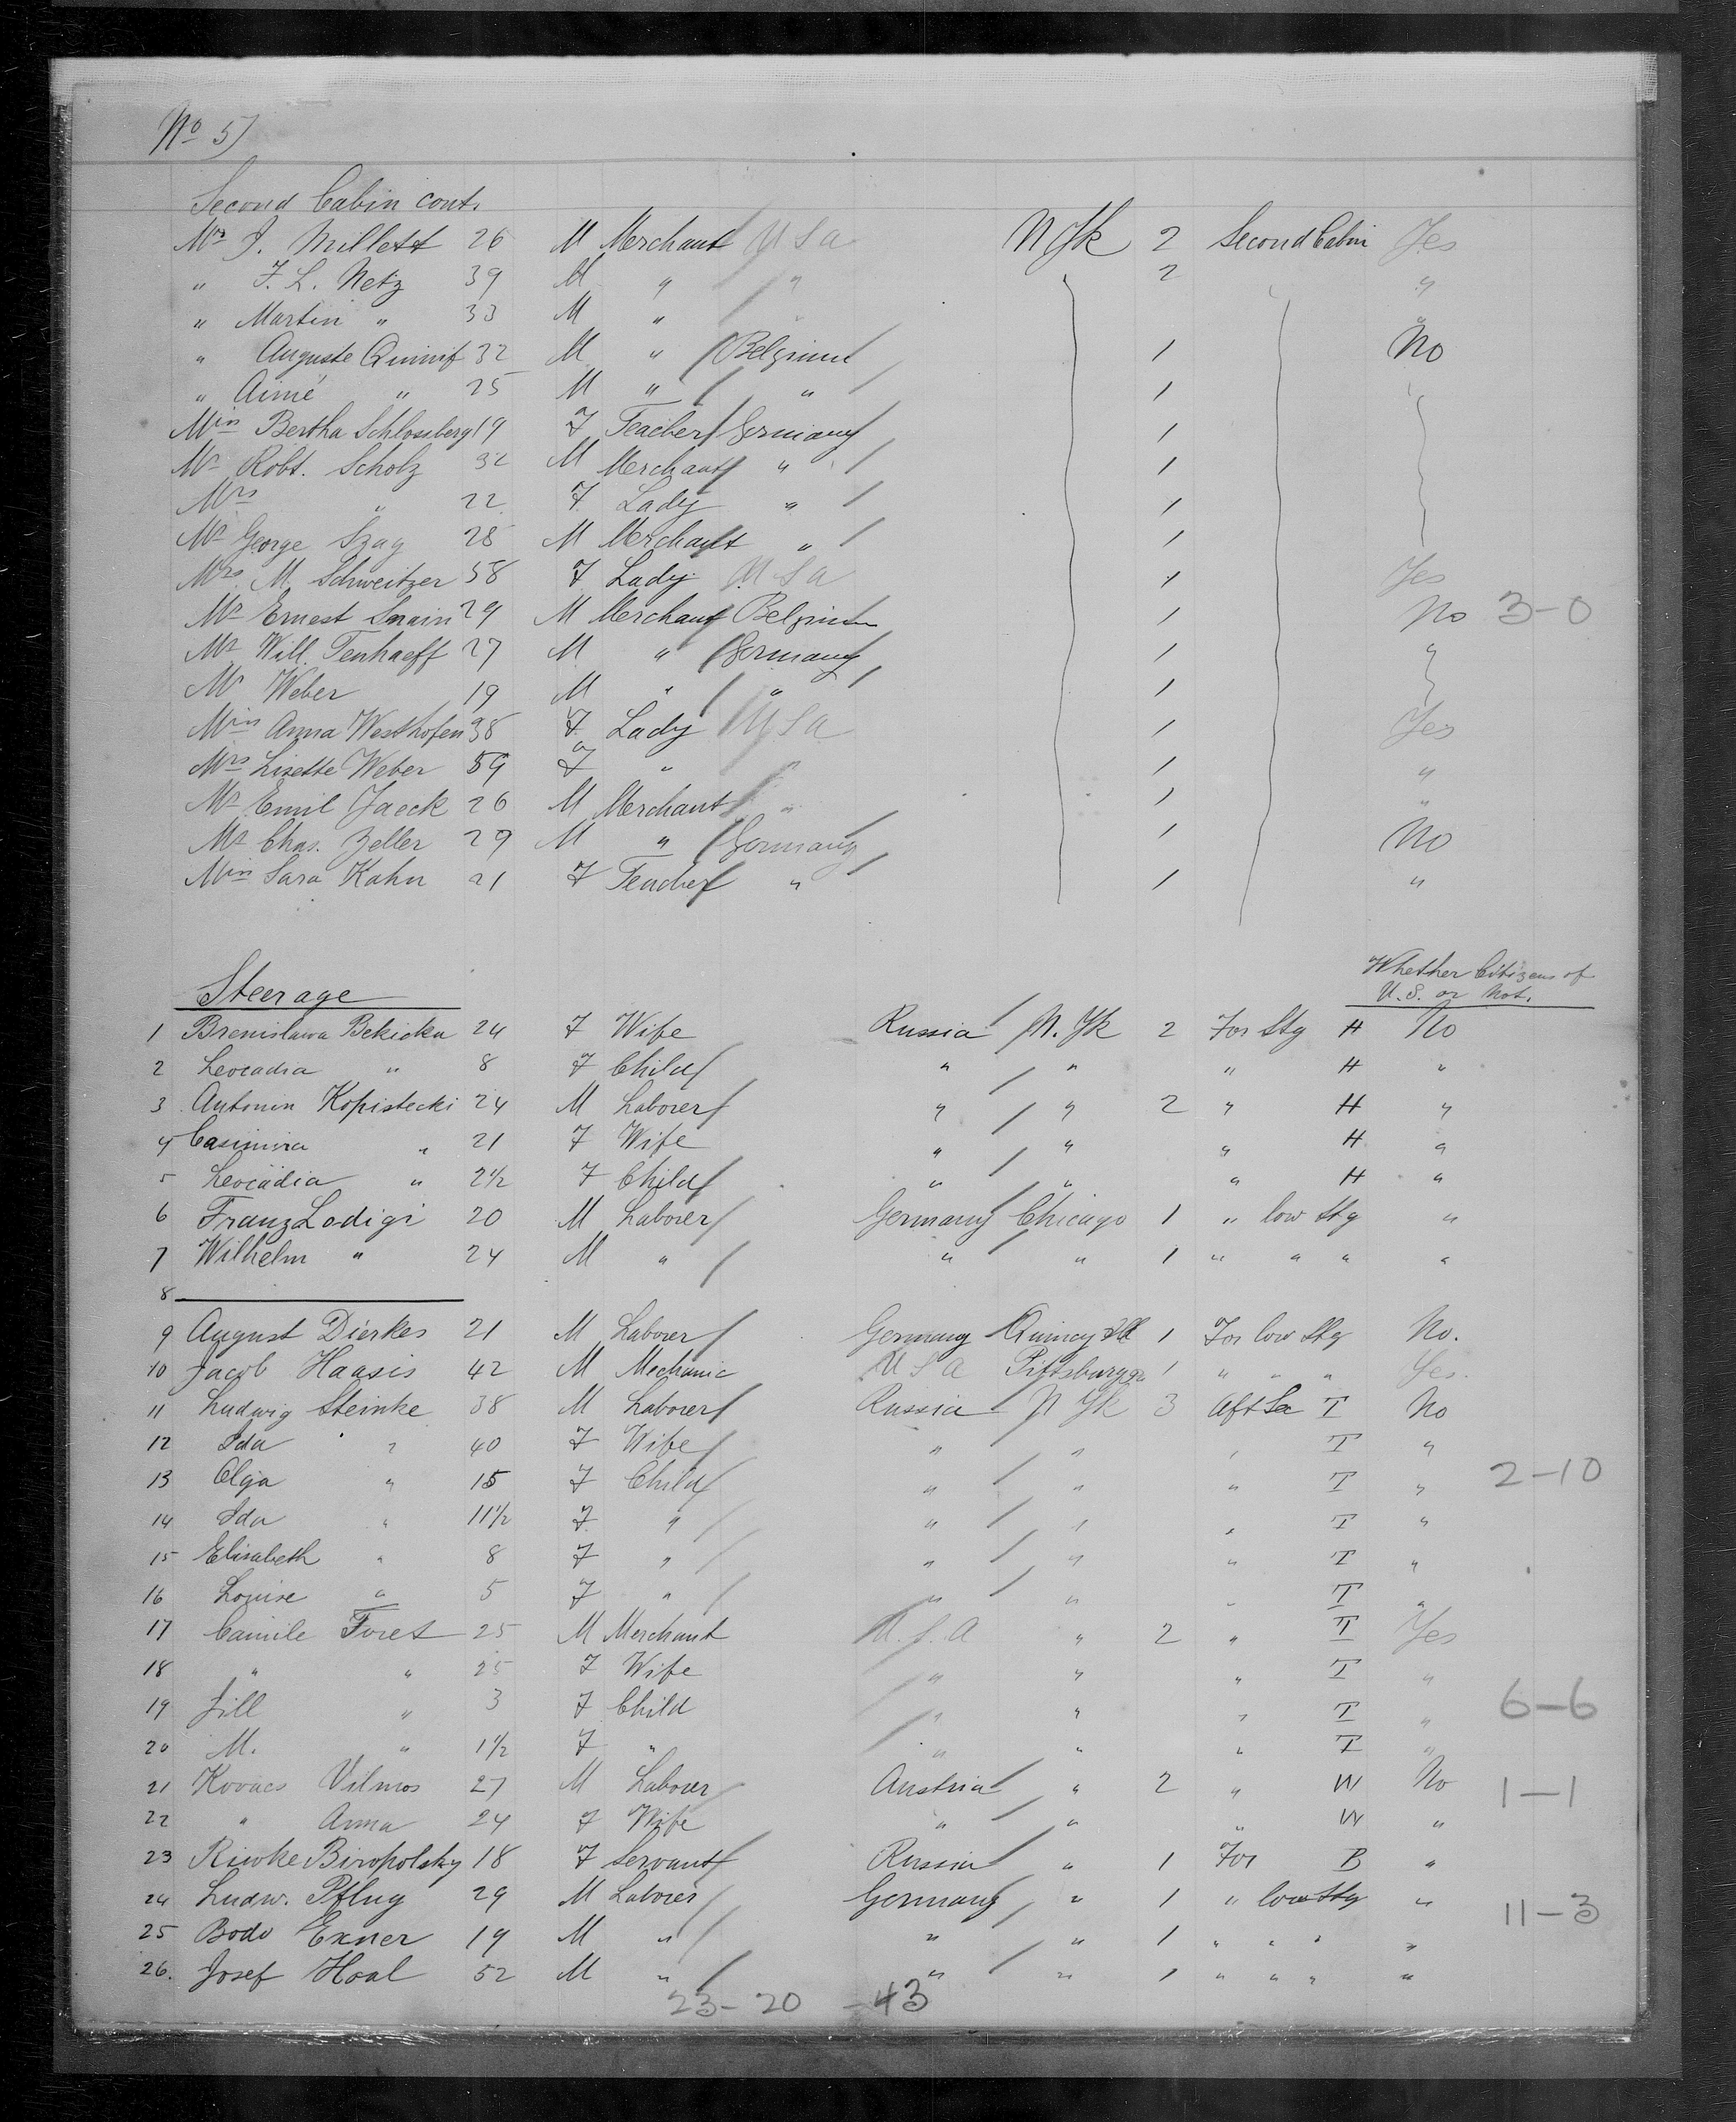 No 5)
Second Cabin cont.
Mr J. Millett 26 M Merchant U S a N Yk 2 Second Cabin Yes
" F. L. Netz 39 M " " 2 "
" Martin " 33 M " "
" Auguste 32 M " Belgium 1 No
" Aimé " 25 M " " 1
Miss Bertha Schlossberg 19 F Teacher Germany 1
Mr Robt. Scholz 32 M Merchant " 1
Mrs " 22 F Lady " 1
Mr George Szag 28 M Merchant " 1
Mrs M. Schweitzer 58 F Lady U S a 1 Yes
Mr Ernest Smain 29 M Merchant Belgium 1 No 3-0
Mr Will. Tenhaeff 27 M " Germany 1 "
Mr Weber 19 M " " 1
Miss Anna Westhofen 38 F Lady U S a 1 Yes
Mrs Lisette Weber 59 F " " 1 "
Mr Emil Jaeck 26 M Merchant " 1 "
Mr Chas. Zeller 29 M " Germany 1 No
Miss Sara Kahn 21 F Teacher " 1 "
Whether Citizens of
Steerage U. S. or Not.
1 Brenislawa Bekicka 24 F Wife Russia N. Yk 2 For Stg H No
2 Leocadia " 8 F Child " " " H "
3 Antonin Kopistecki 24 M Laborer " " 2 " H "
4 Casimira " 21 F Wife " " " H "
5 Leocadia " 2 1/2 F Child " " " H "
6 Franz Lodigi 20 M Laborer Germany Chicago 1 " low Stg "
7 Wilhelm " 24 M " " " 1 " " " "
8
9 August Dierkes 21 M Laborer Germany Quincy Ill 1 For low Stg No.
10 Jacob Haasis 42 M Mechanic U S A Pittsburg 1 " " " Yes.
11 Ludwig Steinke 38 M Laborer Russia N Yk 3 Aft T No
12 Ida " 40 F Wife " " " T "
13 Olga " 15 F Child " " " T " 2-10
14 Ida " 11 1/2 F " " " " T "
15 Elisabeth " 8 F " " " " T "
16 Louise " 5 F " " " " T "
17 Camile Foret 25 M Merchant U. S. A " 2 " T Yes
18 " " 25 F Wife " " " T "
19 Jill " 3 F Child " " " T " 6-6
20 M. " 1 1/2 F " " " " T "
21 Kovacs Vilmos 27 M Laborer Austria " 2 " W No 1-1
22 " Anna 24 F Wife " " " W "
23 Riwke Biropolsky 18 F Servant Russia " 1 For B "
24 Ludw. Pflug 29 M Laborer Germany " 1 " low Stg " 11-3
25 Bodo Exner 19 M " " " 1 " " " "
26. Josef Hoal 52 M " " " 1 " " " "
23-20 -43